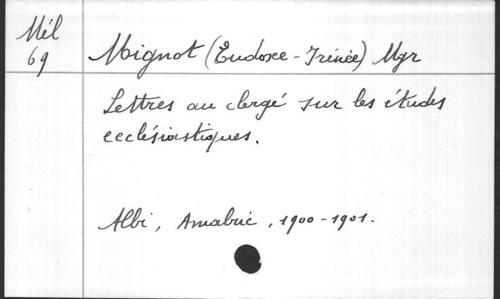 Mél
69
Mignot (Eudoxe-Irénée) Mgr
Lettres au clergé sur les études
ecclésiastiques.
Albi, Amabric, 1900-1901.